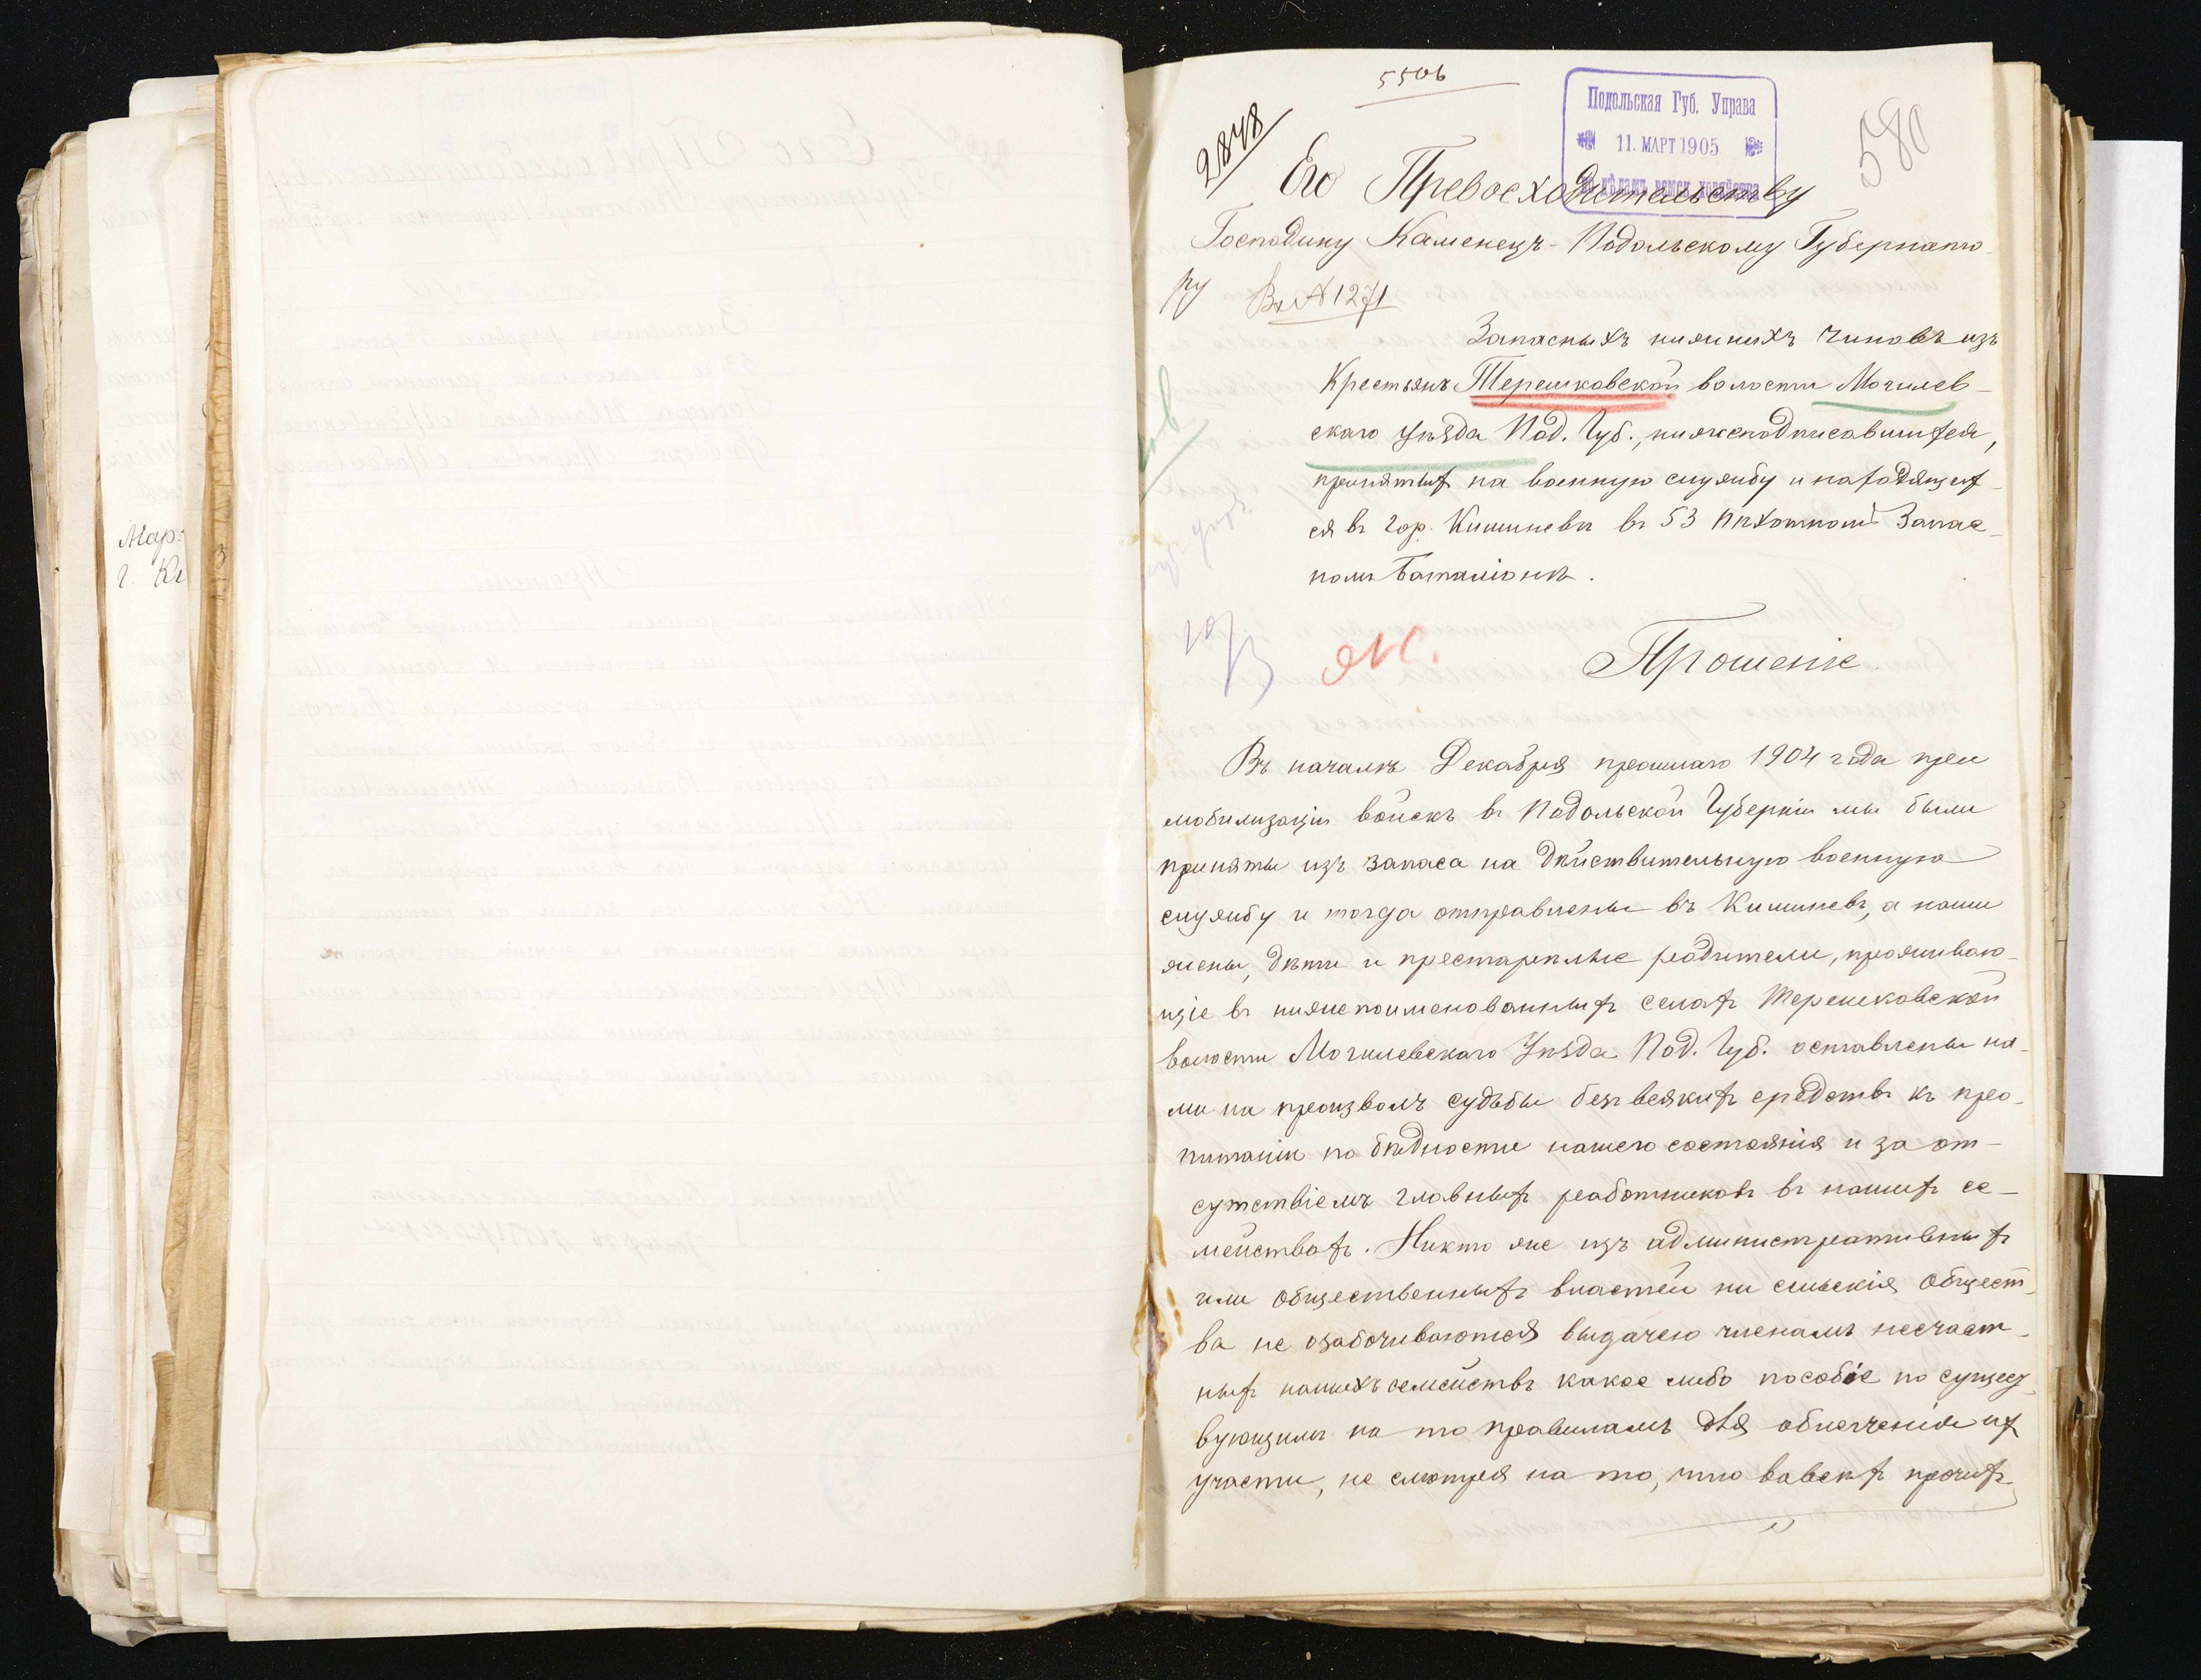 Мар:
г. Ки
5506
2848
Подольская Губ. Управа
11. МАРТ 1905
по дѣламъ земск. хозяйства
580
Его Превосходительству
Господину Каменецъ-Подольскому Губернато-
ру Вх № 1271
Запасныхъ нижнихъ чиновъ изъ
Крестьянъ Терешковской волости Могилев-
скаго Уѣзда Под. Губ., нижеподписавшихся,
принятыхъ на военную службу и находящих-
ся въ гор. Кишиневѣ въ 53 Пѣхотномъ Запас-
номъ баталіонѣ.
Прошеніе
Въ началѣ Декабря прошлаго 1904 года при
мобилизаціи войскъ въ Подольской Губерніи мы были
приняты изъ запаса на дѣйствительную военную
службу и тогда отправлены въ Кишиневъ, а наши
жены, дѣти и престарѣлые родители, проживаю-
щіе въ нижепоименованныхъ селахъ Терешковской
волости Могилевскаго Уѣзда Под. Губ. оставлены на-
ми на произволъ судьбы безъ всякихъ средствъ къ про-
питанію по бѣдности нашего состоянія и за от-
сутствіемъ главныхъ работниковъ въ нашихъ се-
мействахъ. Никто же изъ административныхъ
или общественныхъ властей ни сельскія общест-
ва не озабочиваются выдачею членамъ несчаст-
ныхъ нашихъ семействъ какое либо пособіе по сущест-
вующимъ на то правиламъ для облегченія ихъ
участи, не смотря на то, что вовсѣхъ прочихъ